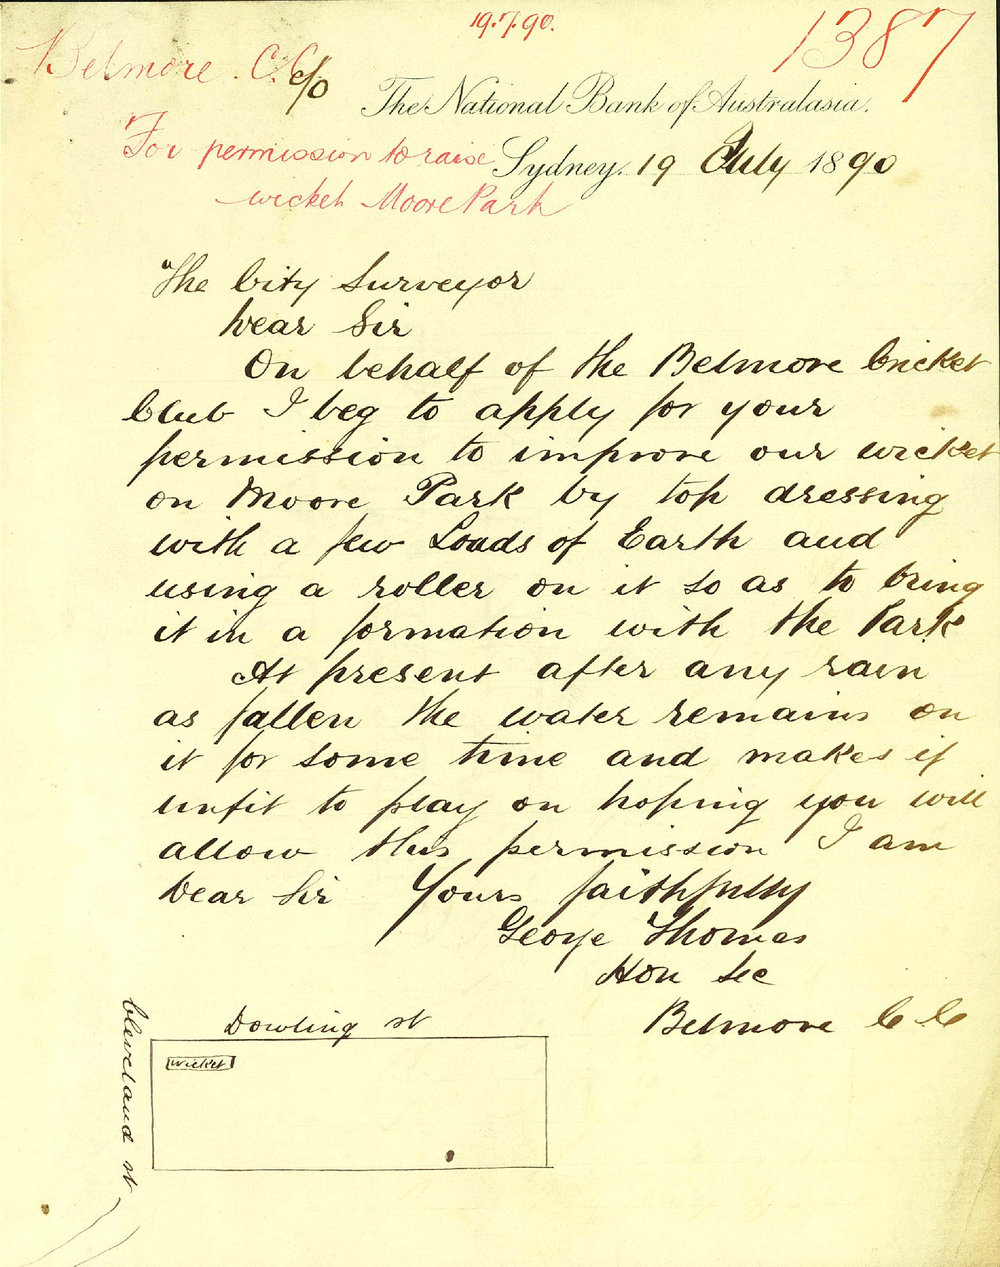 19.7.90.
1387
Belmore. C.C.
c/o
The National Bank of Australasia.
For permission to raise
wicket Moore Park
Sydney. 19 July 1890
"The City Surveyor
Dear Sir
On behalf of the Belmore Cricket
Club I beg to apply for your
permission to improve our wicket
on Moore Park by top dressing
with a few Loads of Earth and
using a roller on it so as to bring
it in a formation with the Park
At present after any rain
as fallen the water remains on
it for some time and makes it
unfit to play on hoping you will
allow this permission I am
Dear Sir Yours faithfully
George Thomas
Hon Sec
Belmore C C
Dowling st
wicket
Cleveland st